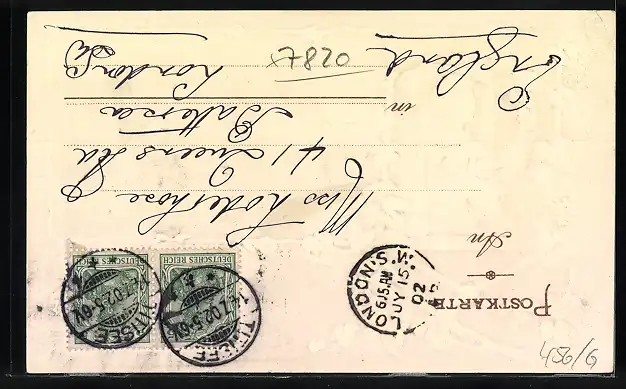 POSTKARTE
An
Miss Loderhose
41 Queens Rd
Battersea
in
London SW
England
7820
DEUTSCHES REICH
DEUTSCHES REICH
LONDON.S.W.
6.15 AM
JY 15
02
456/6